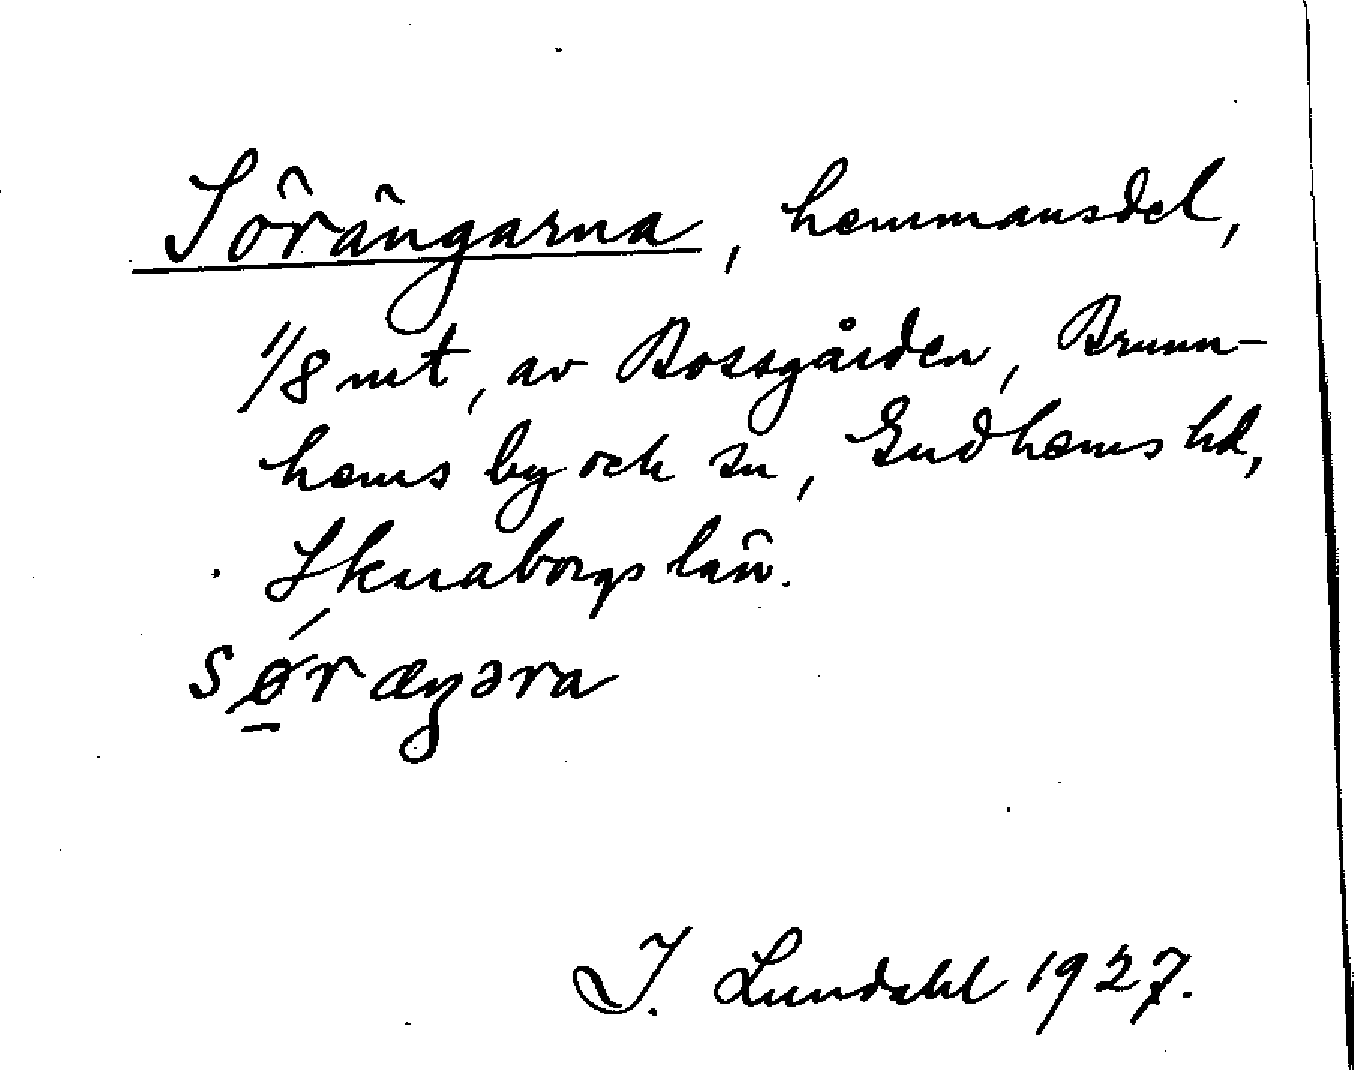 Sörängarna, hemmansdel,
1/8 mt, av Bossgården, Brunn-
hems by och sn, Gudhems hd,
Skaraborgs län.
sø̱ŕ æŋəra
I. Lundahl 1927.